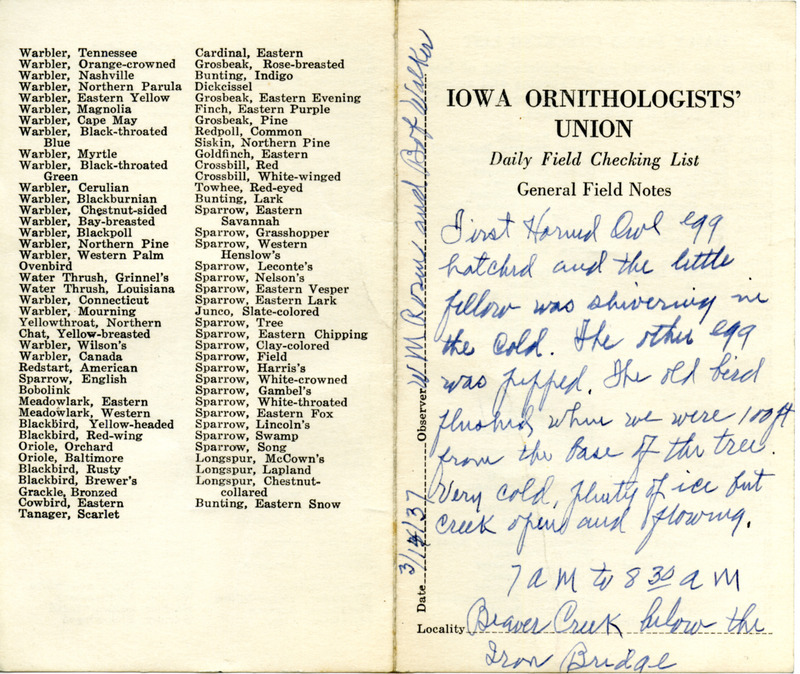 Warbler, Tennessee
Warbler, Orange-crowned
Warbler, Nashville
Warbler, Northern Parula
Warbler, Eastern Yellow
Warbler, Magnolia
Warbler, Cape May
Warbler, Black-throated
Blue
Warbler, Myrtle
Warbler, Black-throated
Green
Warbler, Cerulian
Warbler, Blackburnian
Warbler, Chestnut-sided
Warbler, Bay-breasted
Warbler, Blackpoll
Warbler, Northern Pine
Warbler, Western Palm
Ovenbird
Water Thrush, Grinnel's
Water Thrush, Louisiana
Warbler, Connecticut
Warbler, Mourning
Yellowthroat, Northern
Chat, Yellow-breasted
Warbler, Wilson's
Warbler, Canada
Redstart, American
Sparrow, English
Bobolink
Meadowlark, Eastern
Meadowlark, Western
Blackbird, Yellow-headed
Blackbird, Red-wing
Oriole, Orchard
Oriole, Baltimore
Blackbird, Rusty
Blackbird, Brewer's
Grackle, Bronzed
Cowbird, Eastern
Tanager, Scarlet
Cardinal, Eastern
Grosbeak, Rose-breasted
Bunting, Indigo
Dickcissel
Grosbeak, Eastern Evening
Finch, Eastern Purple
Grosbeak, Pine
Redpoll, Common
Siskin, Northern Pine
Goldfinch, Eastern
Crossbill, Red
Crossbill, White-winged
Towhee, Red-eyed
Bunting, Lark
Sparrow, Eastern
Savannah
Sparrow, Grasshopper
Sparrow, Western
Henslow's
Sparrow, Leconte's
Sparrow, Nelson's
Sparrow, Eastern Vesper
Sparrow, Eastern Lark
Junco, Slate-colored
Sparrow, Tree
Sparrow, Eastern Chipping
Sparrow, Clay-colored
Sparrow, Field
Sparrow, Harris's
Sparrow, White-crowned
Sparrow, Gambel's
Sparrow, White-throated
Sparrow, Eastern Fox
Sparrow, Lincoln's
Sparrow, Swamp
Sparrow, Song
Longspur, McCown's
Longspur, Lapland
Longspur, Chestnut-
collared
Bunting, Eastern Snow
Date 3/ /37 Observer W M Rosene and Bob Walker
IOWA ORNITHOLOGISTS'
UNION
Daily Field Checking List
General Field Notes
First Horned Owl egg
hatched and the little
fellow was shivering in
the cold. The other egg
was pipped. The old bird
flushed when we were 100 ft
from the base of the tree.
Very cold, plenty of ice but
Creek open and flowing.
7 a m to 8 30 a m
Locality Beaver Creek below the
Iron Bridge